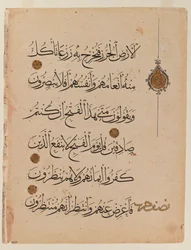 الأرض الجرز فنخرج به زرعا تأكل
منه أنعامهم وأنفسهم أفلا يبصرون
ويقولون متى هذا الفتح إن كنتم
صادقين قل يوم الفتح لا ينفع الذين
كفروا إيمانهم ولا هم ينظرون
فأعرض عنهم وانتظر إنهم منتظرون